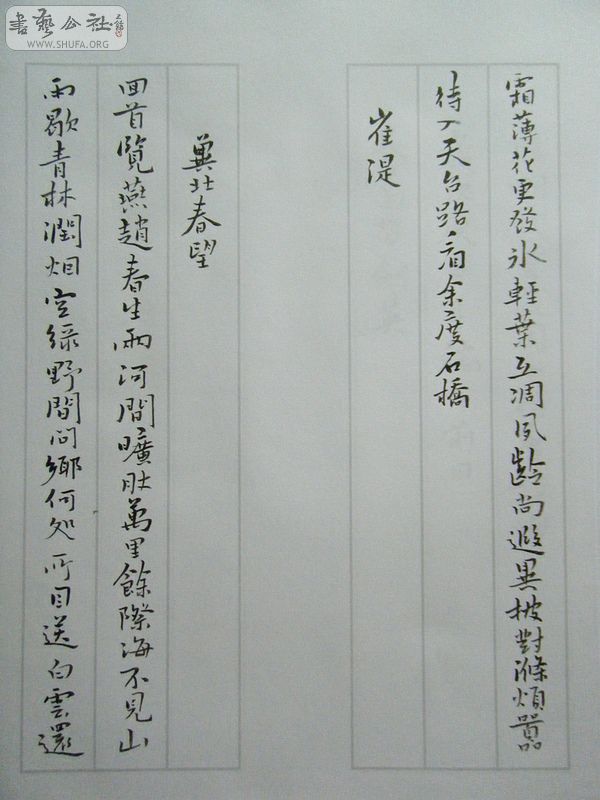 書藝公社
WWW.SHUFA.ORG
霜薄花更發冰輕葉互凋夙齡尚遐異披對滌煩囂
待入天台路看余度石橋
崔湜
冀北春望
回首覽燕趙春生兩河間曠肚萬里餘際海不見山
雨歇青林潤烟空綠野間問鄉何処所目送白雲還